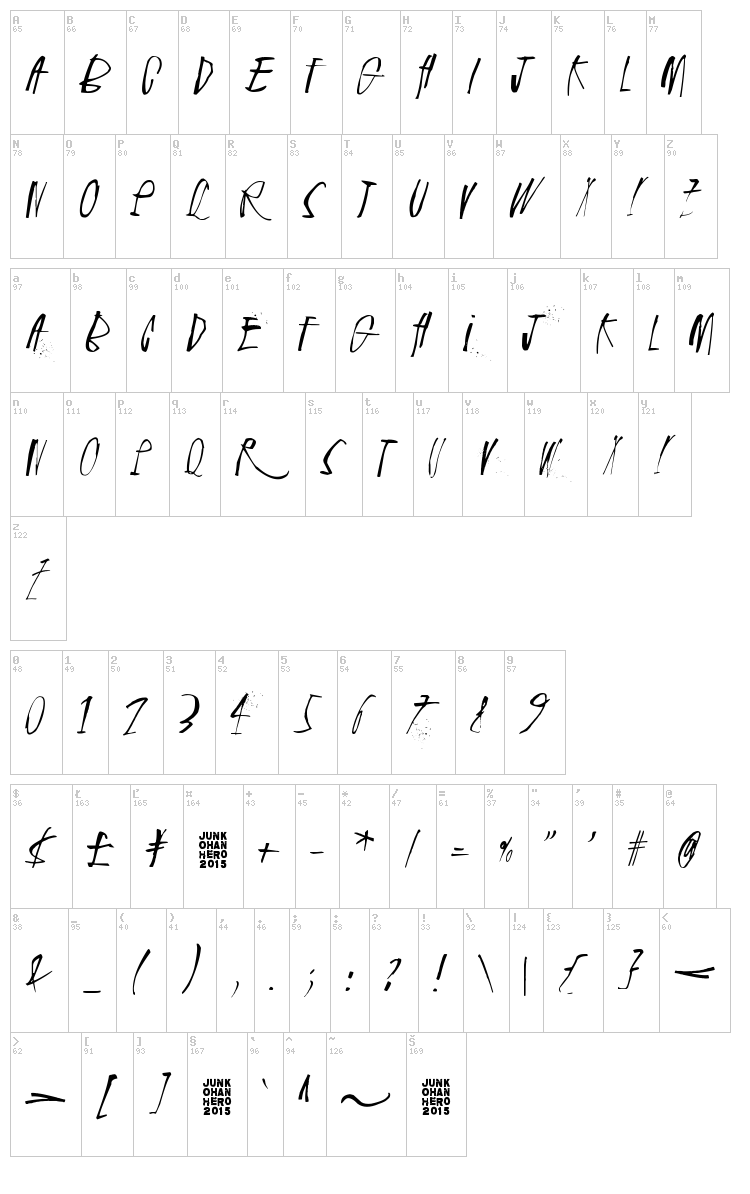 A B C D E F G H I J K L M
65 66 67 68 69 70 71 72 73 74 75 76 77
A B C D E F G H I J K L M
N O P Q R S T U V W X Y Z
78 79 80 81 82 83 84 85 86 87 88 89 90
N O P Q R S T U V W X Y Z
a b c d e f g h i j k l m
97 98 99 100 101 102 103 104 105 106 107 108 109
A B C D E F G H i J K L M
n o p q r s t u v w x y
110 111 112 113 114 115 116 117 118 119 120 121
N O P Q R S T U V W X Y
z
122
Z
0 1 2 3 4 5 6 7 8 9
48 49 50 51 52 53 54 55 56 57
0 1 2 3 4 5 6 7 8 9
$ Ł Ľ ¤ + - * / = % " ' # @
36 163 165 164 43 45 42 47 61 37 34 39 35 64
$ £ ¥ JUNK + - * / = % " ' # @
OHAN
HERO
2015
& _ ( ) , . ; : ? ! \ | { } <
38 95 40 41 44 46 59 58 63 33 92 124 123 125 60
& _ ( ) , . ; : ? ! \ | { } <
> [ ] § ` ^ ~ Š
62 91 93 167 96 94 126 169
> [ ] JUNK ` ^ ~ JUNK
OHAN OHAN
HERO HERO
2015 2015